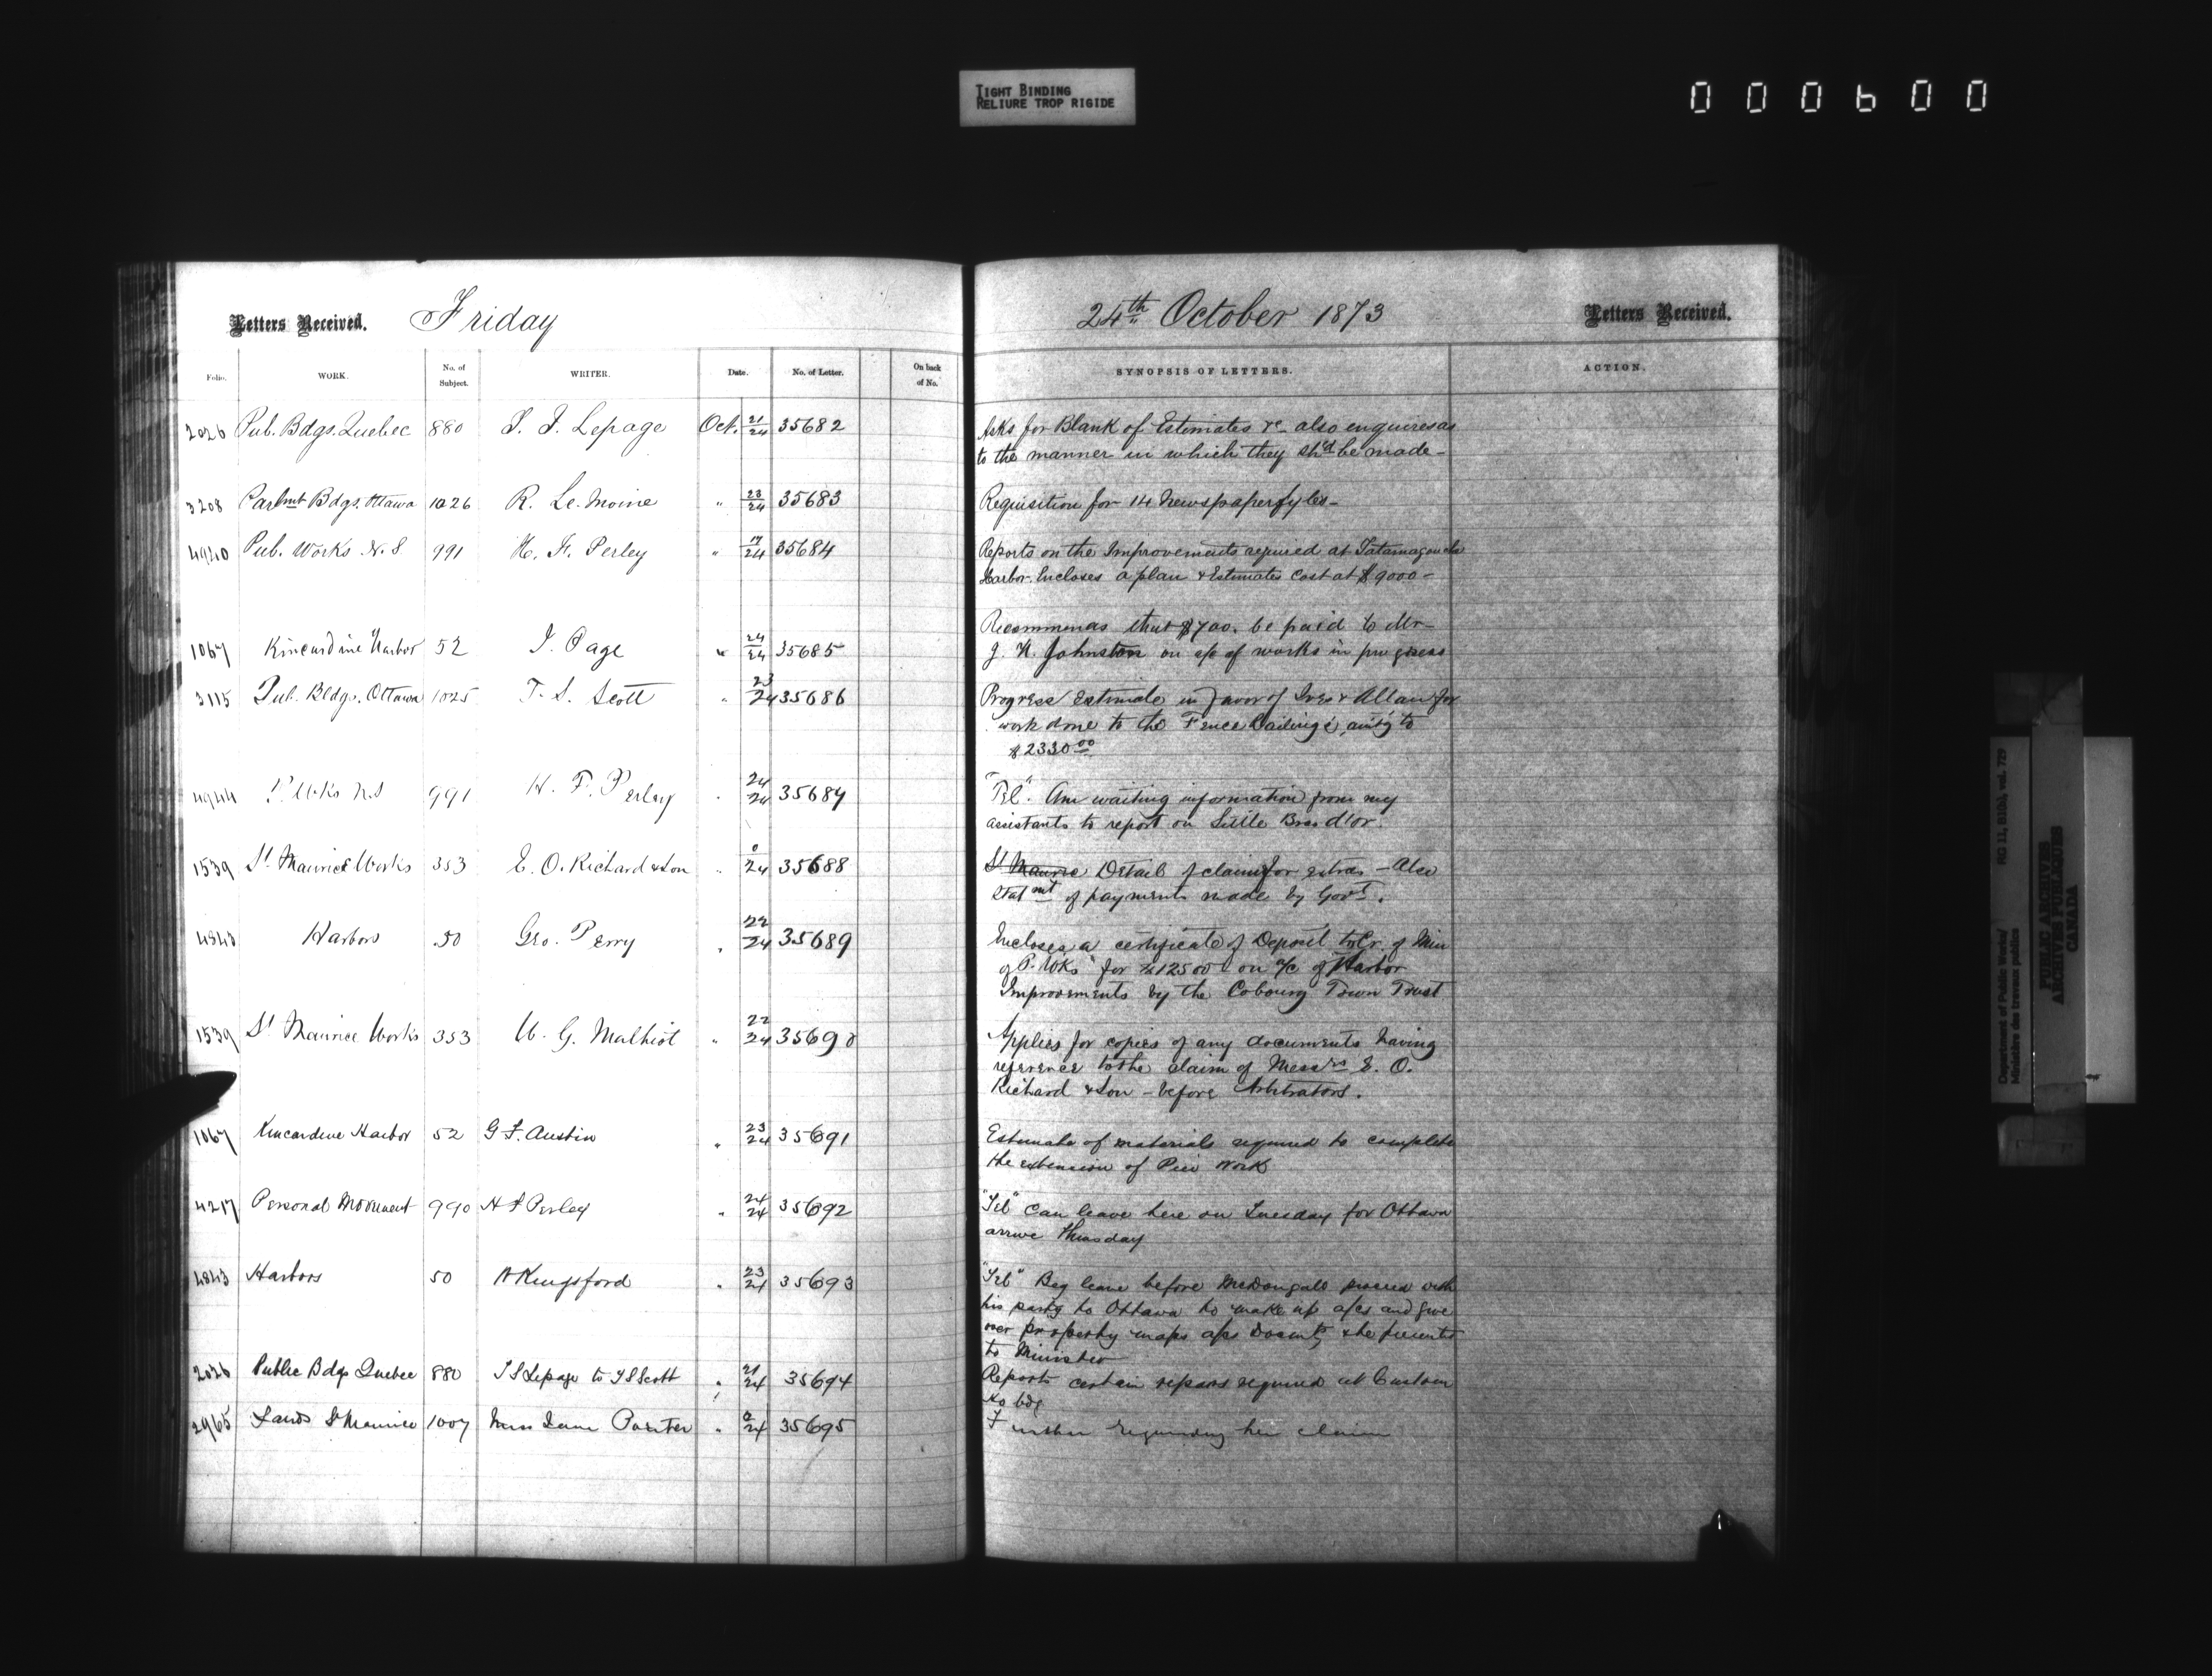 TIGHT BINDING
RELIURE TROP RIGIDE
000600
Letters Received. Friday
24th October 1873 Letters Received.
Folio. WORK. No. of Subject. WRITER. Date. No. of Letter. On back of No. SYNOPSIS OF LETTERS. ACTION.
2026 Pub. Bdgs. Quebec 880 Lepage Oct. 21/24 35682 Asks for Blank of Estimates &c also enquires as
to the manner in which they shd be made -
3208 Parlmt Bdgs. Ottawa 1026 R. Le. Moine " 23/24 35683 Requisition for 14 Newspaper fyles -
4940 Pub. Works N. S 991 H. F. Perley " 17/24 35684 Reports on the Improvements required at Tatamagouche
Harbor. Encloses a plan & Estimates Cost at $9000 -
Recommends that $700. be paid to Mr
1067 Kincardine Harbor 52 J. Page " 24/24 35685 J. N. Johnston on a/c of works in progress
3115 Pub. Bldgs. Ottawa 1025 T. S. Scott " 23/24 35686 Progress Estimate in favor of Ives & Allan for
work done to the Fence Railings, amtg to
$2330 00
4944 P. Wks N.S 991 H. F. Perley " 24/24 35687 "Tel". Am waiting information from my
assistants to report on Little Bras d'or.
1539 St Maurice Works 353 E. O. Richard & Son " 0/24 35688 St Maurice Detail of claim for extras - Also
Statmt of payments made by Govt.
4843 Harbors 50 Geo. Perry " 22/24 35689 Encloses a certificate of Deposit to Cr. of Min
of P. Wks" for $12500 on a/c of Harbor
Improvements by the Cobourg Town Trust
1539 St Maurice Works 353 U. G. Malhiot " 22/24 35690 Applies for copies of any documents having
reference to the claim of Messrs E. O.
Richard & Son - before Arbitrators.
1067 Kincardine Harbor 52 G F. Austin " 23/24 35691 Estimate of materials required to complete
the extension of Pier Work
4217 Personal Movement 990 H F Perley " 24/24 35692 "Tel" Can leave here on Tuesday for Ottawa
arrive Thursday
4843 Harbors 50 W Kingsford " 23/24 35693 "Tel" Beg leave before McDougall proceed with
his party to Ottawa to make up a/cs and give
over property maps a/cs Documts & be present
to Minister
2026 Public Bdgs Quebec 880 Lepage to T S Scott " 21/24 35694 Reports certain repairs required at Custom
Ho bdg
2965 Lands St Maurice 1007 Miss Jane Porter " 0/24 35695 Further regarding her claim
Department of Public Works/
Ministère des travaux publics
RG 11, B1(b), vol. 729
PUBLIC ARCHIVES
ARCHIVES PUBLIQUES
CANADA